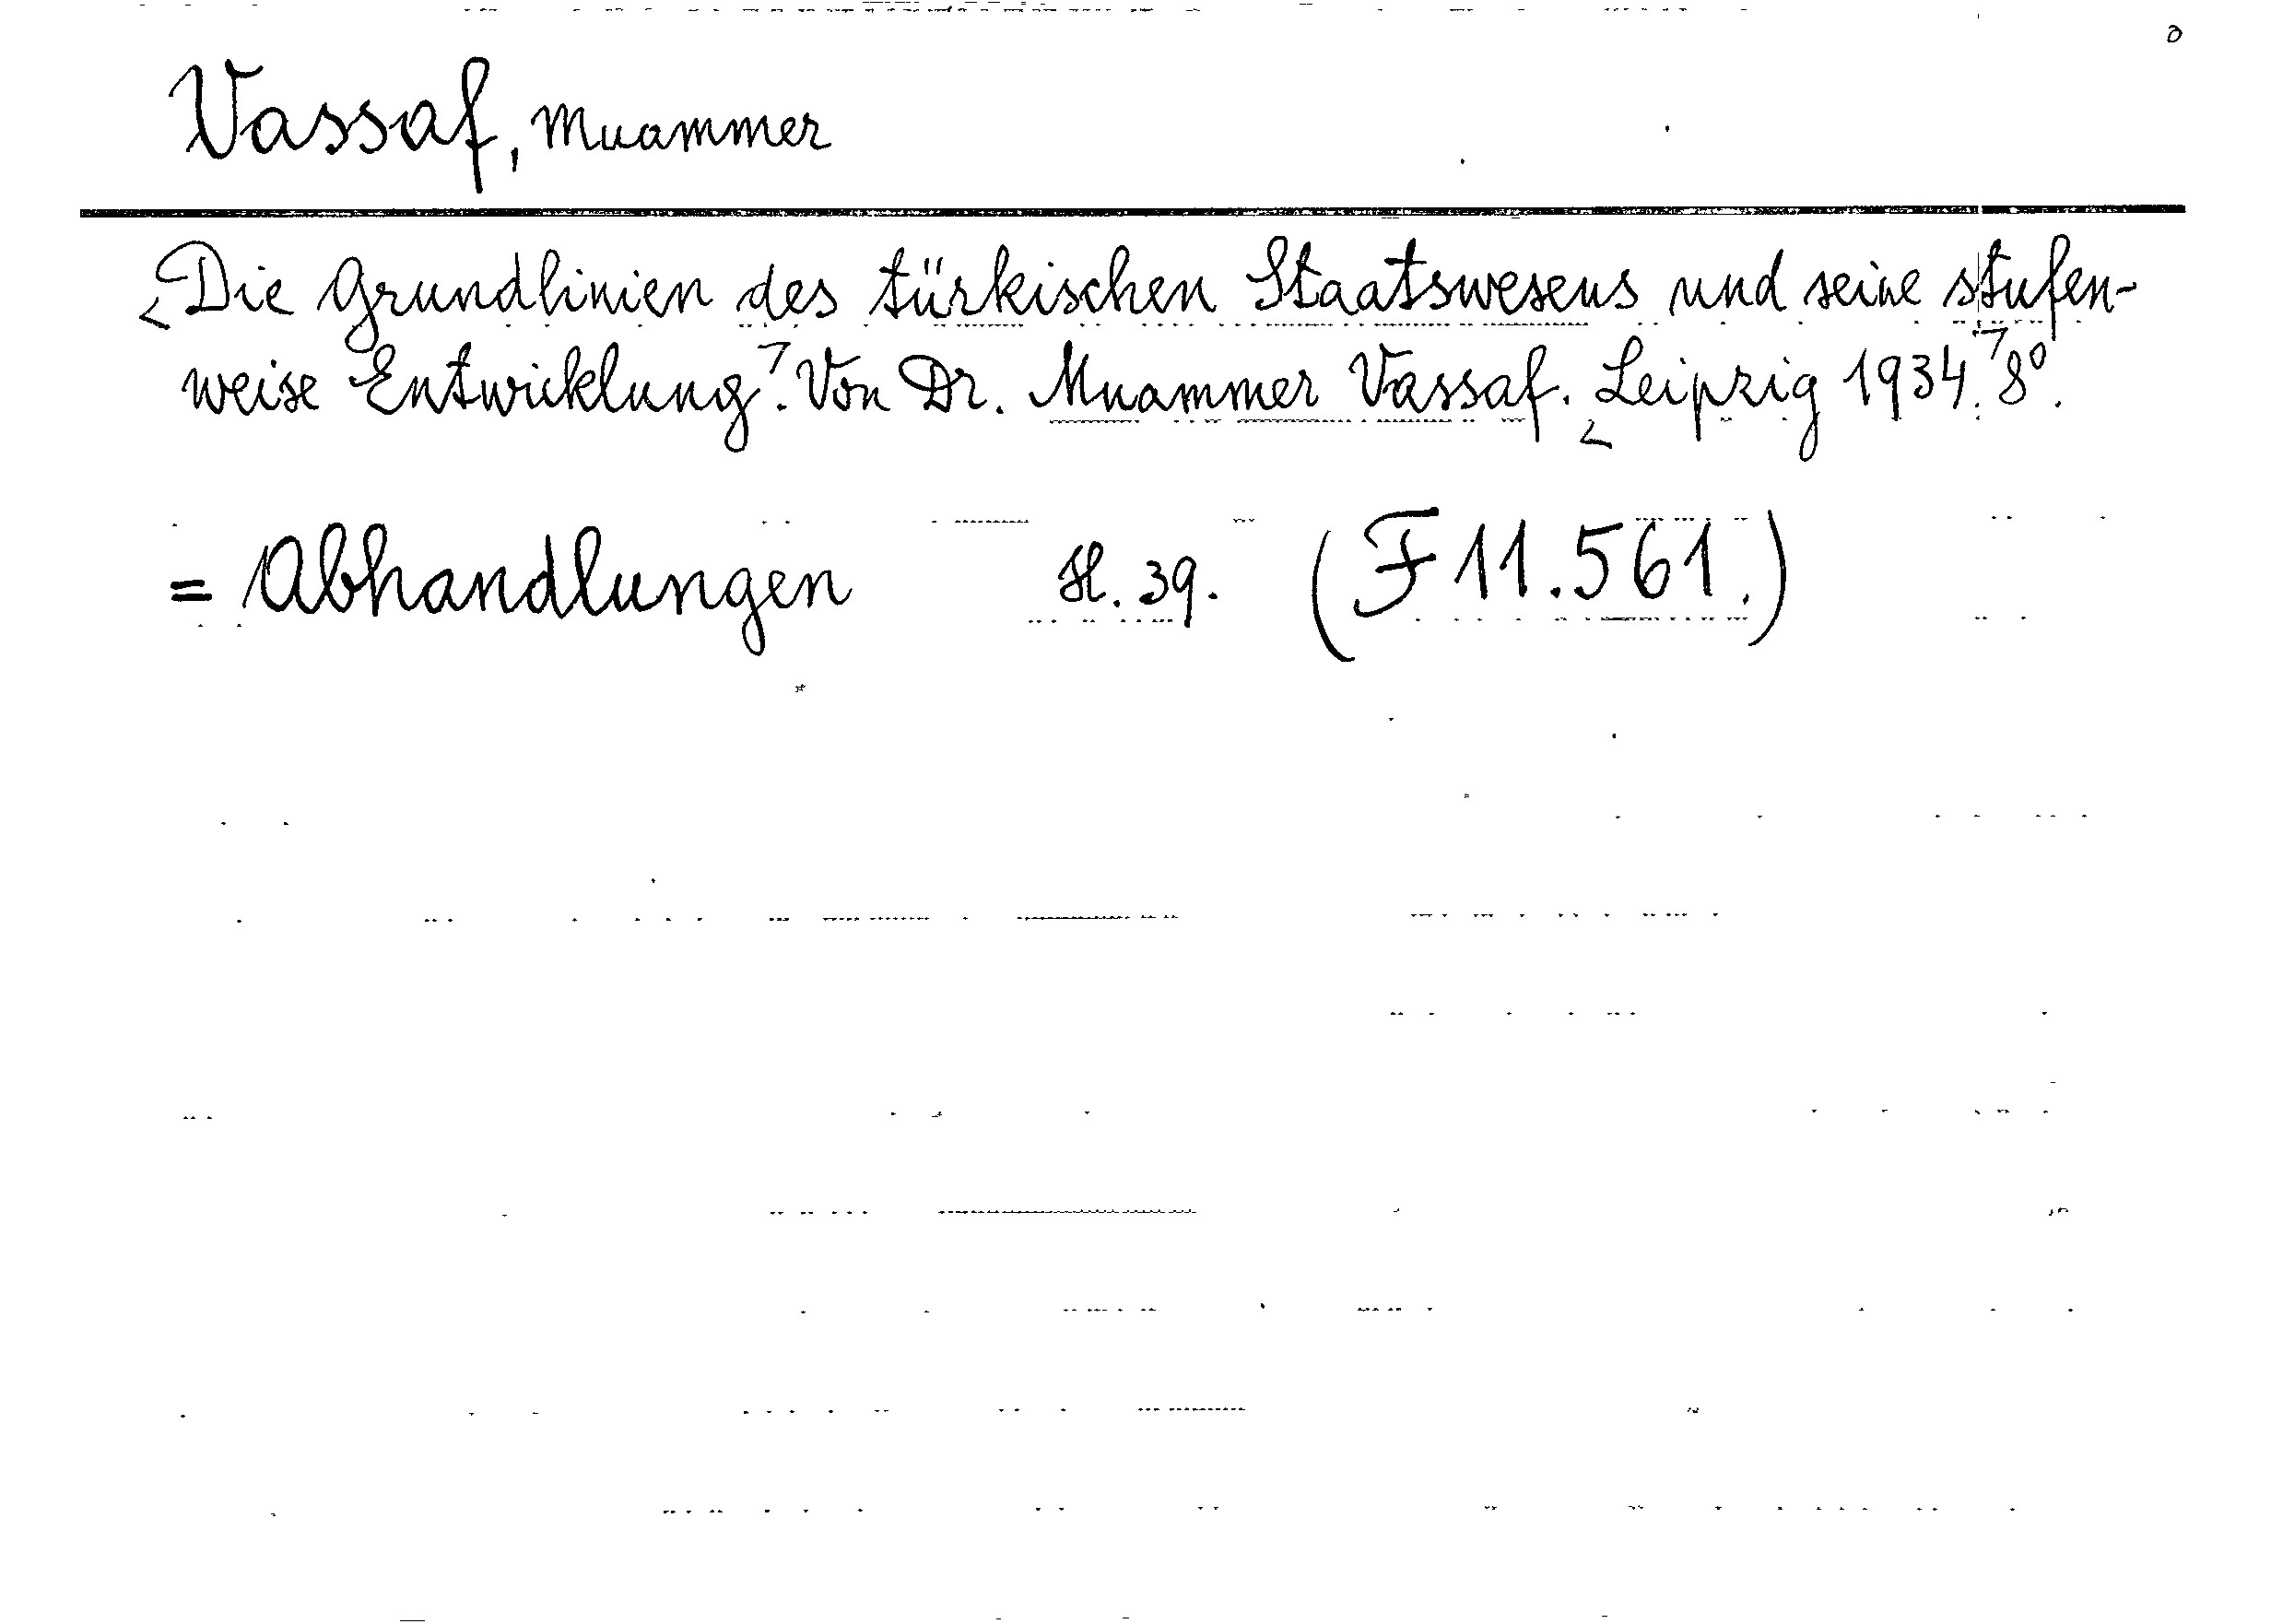 o
Vassaf, Muammer
<Die Grundlinien des türkischen Staatswesens und seine stufen-
weise Entwicklung>. Von Dr. Muammer Vassaf. <Leipzig 1934.> 8°.
= Abhandlungen H. 39. (F 11.561.)